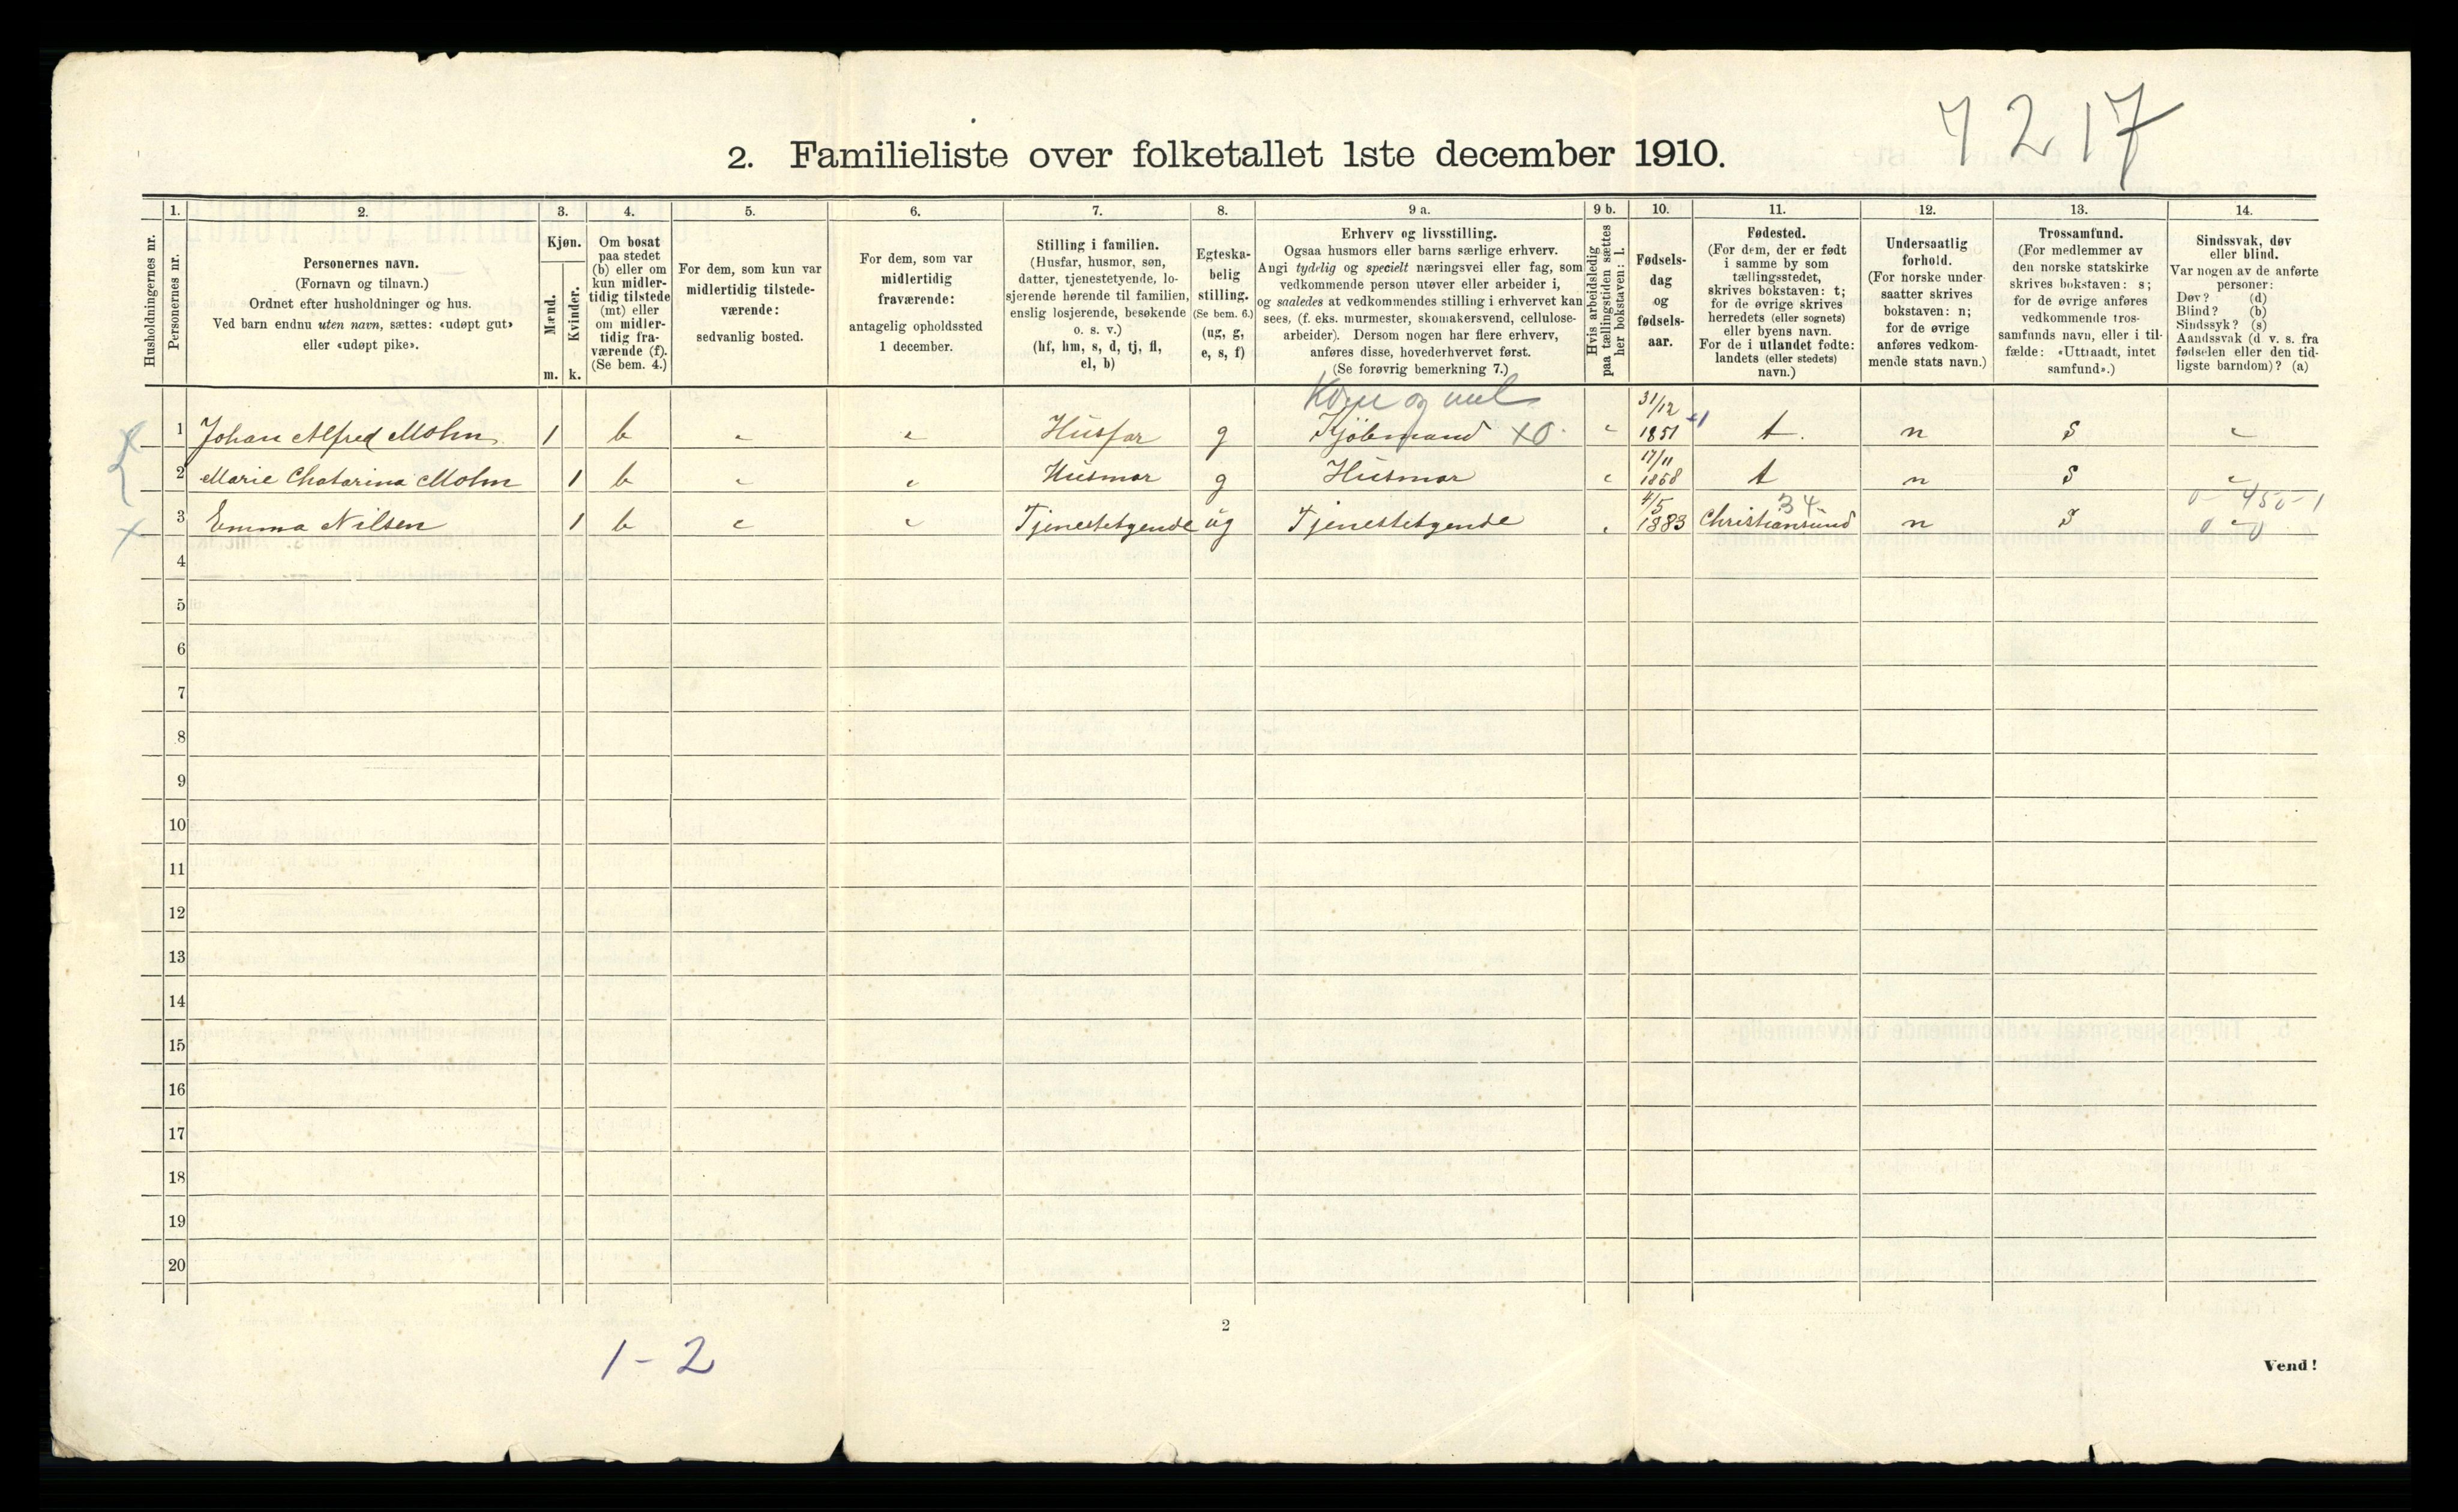 7217
2. Familieliste over folketallet 1ste december 1910.
Husholdningernes nr.
1.
Personernes nr.
2.
Personernes navn.
(Fornavn og tilnavn.)
Ordnet efter husholdninger og hus.
Ved barn endnu uten navn, sættes: «udøpt gut»
eller «udøpt pike».
3.
Kjøn.
Mænd.
Kvinder.
m. k.
4.
Om bosat
paa stedet
(b) eller om
kun midler-
tidig tilstede
(mt) eller
om midler-
tidig fra-
værende (f).
(Se bem. 4.)
5.
For dem, som kun var
midlertidig tilstede-
værende:
sedvanlig bosted.
6.
For dem, som var
midlertidig
fraværende:
antagelig opholdssted
1 december.
7.
Stilling i familien.
(Husfar, husmor, søn,
datter, tjenestetyende, lo-
sjerende hørende til familien,
enslig losjerende, besøkende
o. s. v.)
(hf, hm, s, d, tj, fl,
el, b)
8.
Egteska-
belig
stilling.
(Se bem. 6.)
(ug, g,
e, s, f)
9 a.
Erhverv og livsstilling.
Ogsaa husmors eller barns særlige erhverv.
Angi tydelig og specielt næringsvei eller fag, som
vedkommende person utøver eller arbeider i,
og saaledes at vedkommendes stilling i erhvervet kan
sees, (f. eks. murmester, skomakersvend, cellulose-
arbeider). Dersom nogen har flere erhverv,
anføres disse, hovederhvervet først.
(Se forøvrig bemerkning 7.)
9 b.
Hvis arbeidsledig
paa tællingstiden sættes
her bokstaven: l.
10.
Fødsels-
dag
og
fødsels-
aar.
11.
Fødested.
(For dem, der er født
i samme by som
tællingsstedet,
skrives bokstaven: t;
for de øvrige skrives
herredets (eller sognets)
eller byens navn.
For de i utlandet fødte:
landets (eller stedets)
navn.)
12.
Undersaatlig
forhold.
(For norske under-
saatter skrives
bokstaven: n;
for de øvrige
anføres vedkom-
mende stats navn.)
13.
Trossamfund.
(For medlemmer av
den norske statskirke
skrives bokstaven: s;
for de øvrige anføres
vedkommende tros-
samfunds navn, eller i til-
fælde: «Uttraadt, intet
samfund».)
14.
Sindssvak, døv
eller blind.
Var nogen av de anførte
personer:
Døv? (d)
Blind? (b)
Sindssyk? (s)
Aandssvak (d. v. s. fra
fødselen eller den tid-
ligste barndom)? (a)
og mel
1 Johan Alfred Mohn 1 b " " Husfar g Kjöbmand x0 " 31/12 1851 t. n S "
2 Marie Chatarina Mohn 1 b " " Husmor g Husmor " 17/11 1868 t n S "
34
3 Emma Nilsen 1 b " " Tjenestetyende ug Tjenestetyende " 4/5 1883 Christiansund n S "
4
5
6
7
8
9
10
11
12
13
14
15
16
17
18
19
20
2
1-2
Vend!